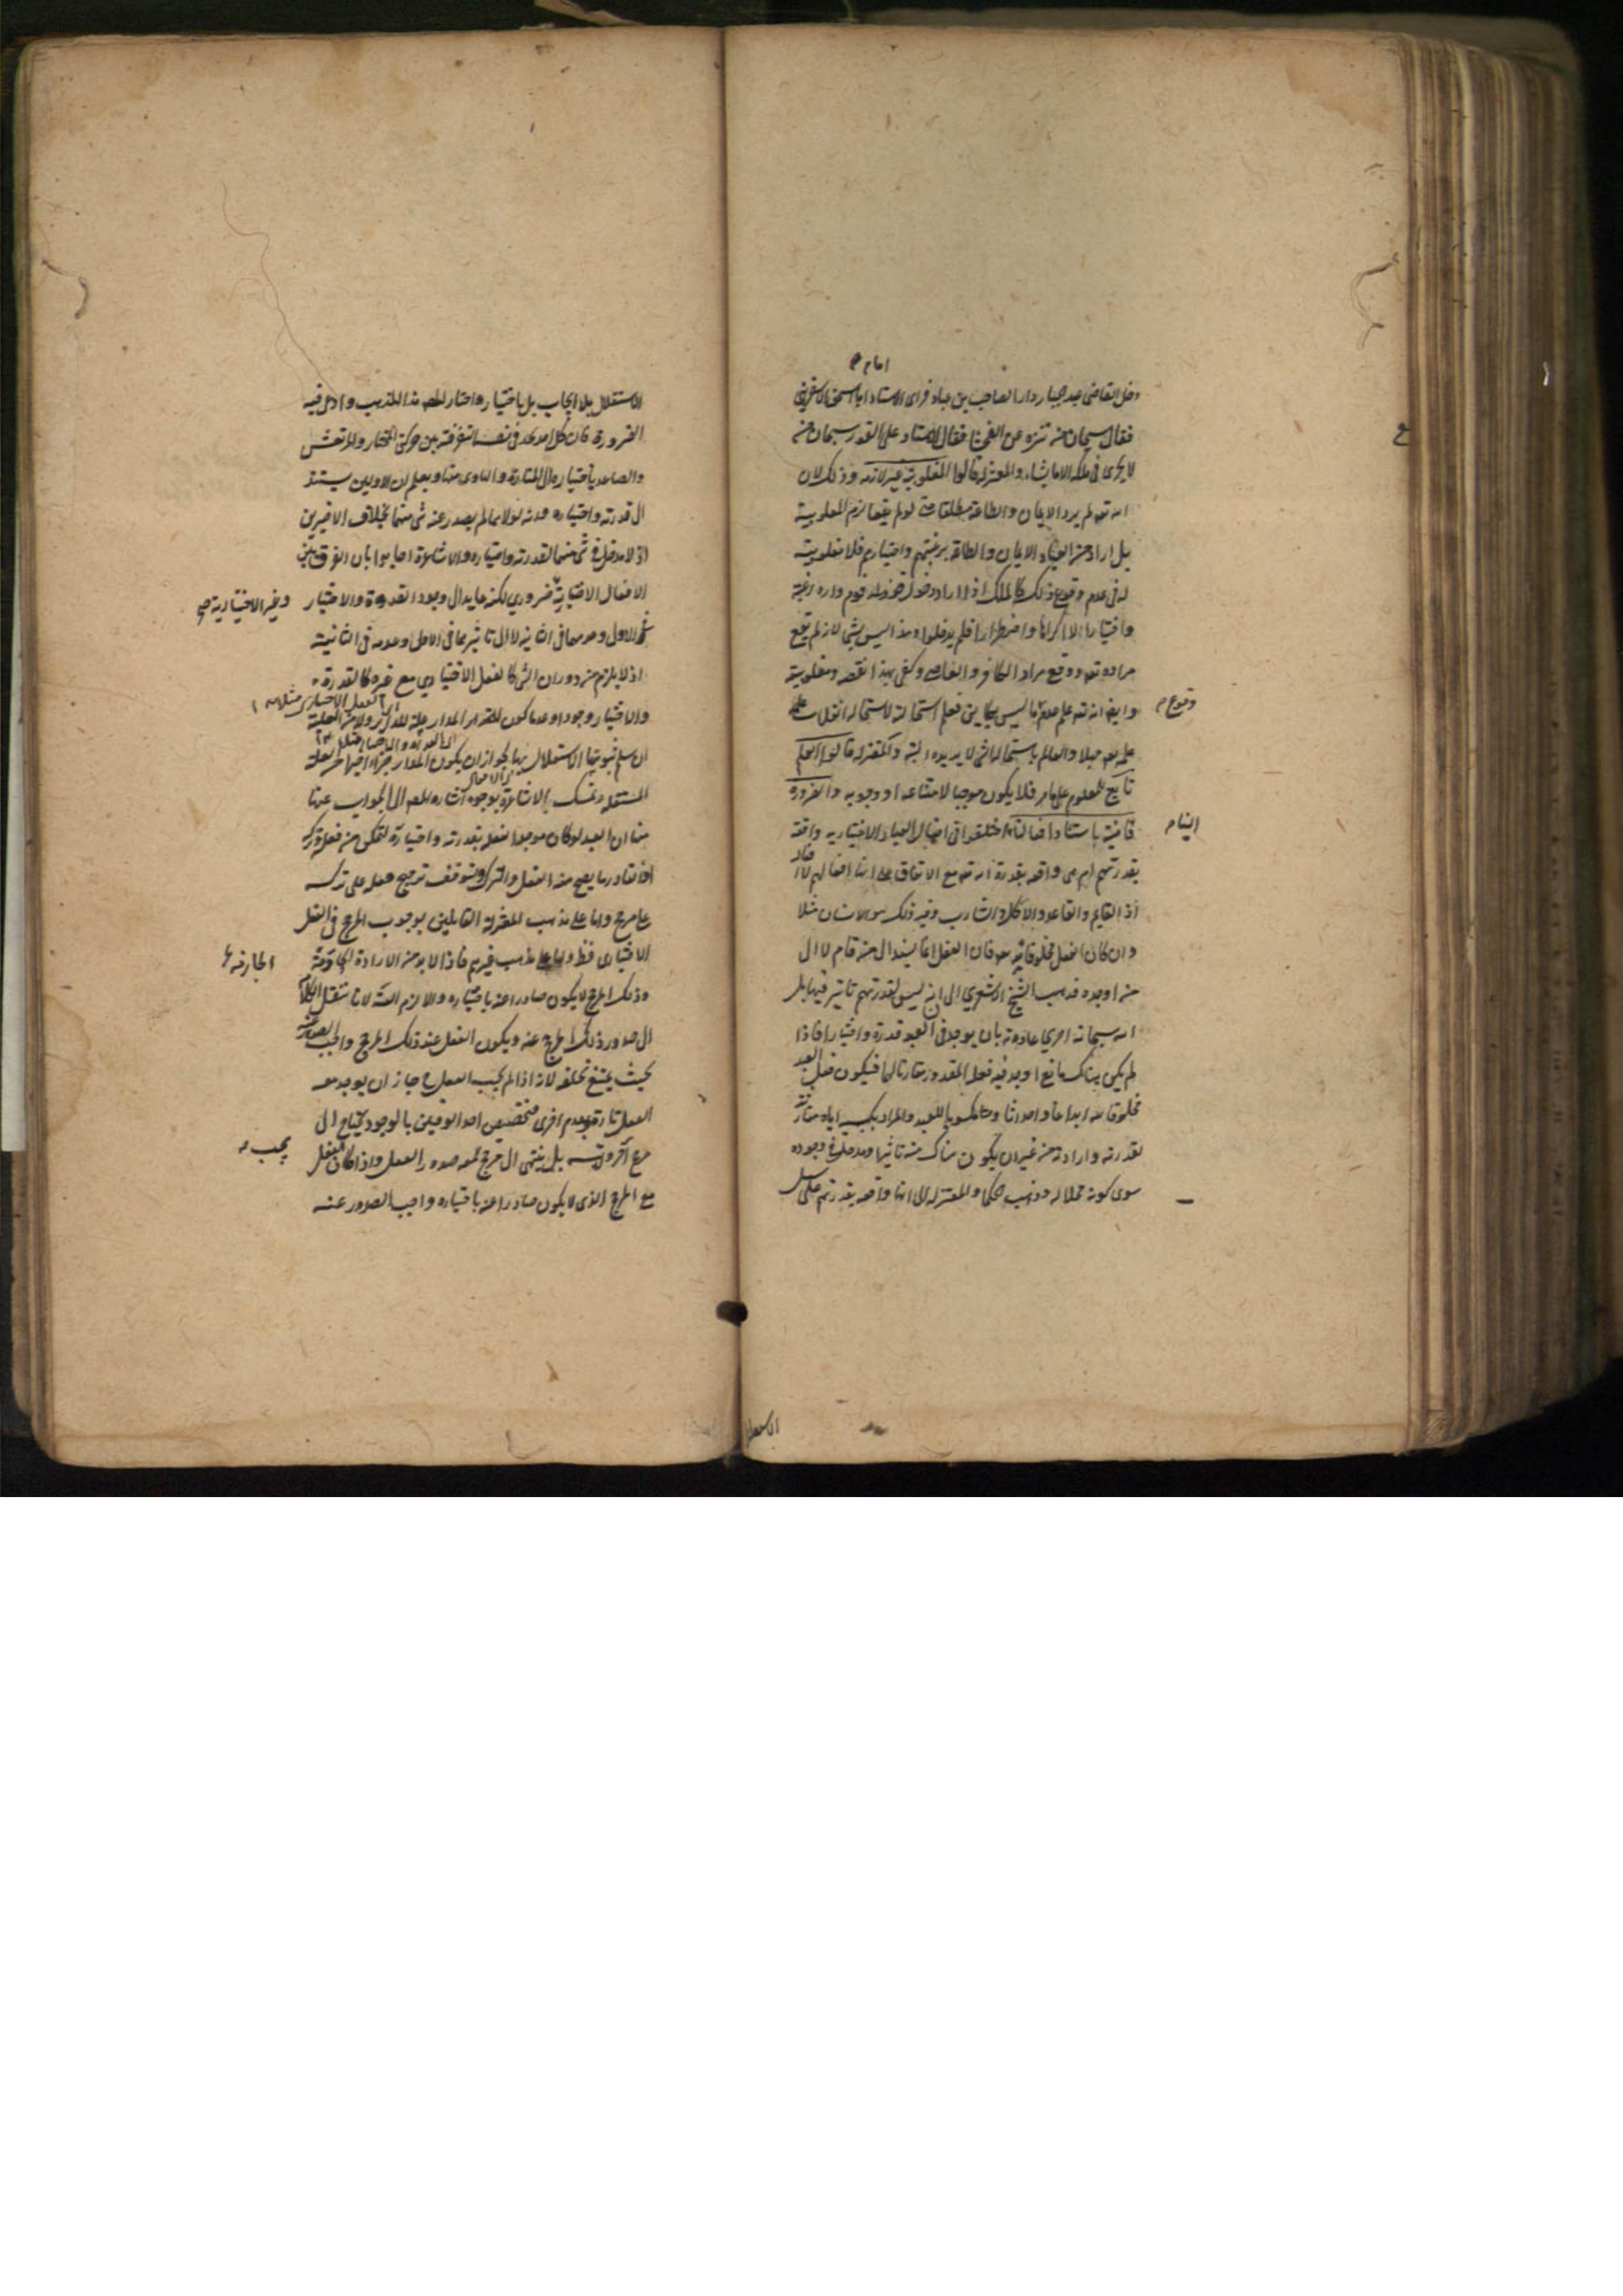 امام
دخل القاضى عبد الجبار دار الصاحب بن عباد فراى الاستاد ابا اسحق الاسفرينى
فقال سبحان من تنزه عن الفحشا فقال الاستاد على الفور سبحان من
لا يجرى فى ملكه الا ما يشاء والمعتزلة قالوا المغلوبية غير لازمه وذلك لان
الله تعه لم يرد الايمان والطاعة مطلقا حتى لو لم يقعا لزم المغلوبية
بل اراد من العباد الايمان والطاعة برغبتهم واختيارهم فلا مغلوبية
له فى عدم وقوع ذلك كالملك اذا اراد دخول قوم داره رغبة
واختيارا لا اكراها واضطرارا فلم يدخلوا وهذا ليس بشئ لانه لم يقع
مراده تعه ووقع مراد الكافر والفاسق وكفى بهذا نقصه ومغلوبية
وقوع
وايضا انه تعه علم عدم ما ليس بكاين فعلم استحالته لاستحالة انقلاب
علمه تعه جهلا والعالم باستحالة الشئ لا يريده البتة والمعتزلة قالوا العلم
تابع للمعلوم على ما مر فلا يكون موجبا لامتناعه او وجوبه والضرورة
الينا
قاضية باستناد افعالنا اختلفوا فى افعال العباد الاختياريه واقعة
بقدرتهم ام هى واقعه بقدرة الله تعه مع الاتفاق على انها افعالهم لا افعاله
اذ القايم والقاعد والاكل والشارب وغير ذلك هو الانسان مثلا
وان كان الفعل مخلوقا لله تعه فان الفعل انما يسند الى من قام لا الى
من اوجده فذهب الشيخ الاشعري الى انه ليس لقدرتهم تاثير فيها بل
الله سبحانه اجرى عادته بان يوجد فى العبد قدرة واختيارا فاذا
لم يكن هناك مانع اوجد فيه فعله المقدور مقارنا لهما فيكون فعل العبد
مخلوقا لله ابداعا واحداثا ومكسوبا للعبد والمراد بكسبه اياه مقارنته
لقدرته وارادته من غير ان يكون هناك منه تاثير او مدخل فى وجوده
سوى كونه محلا له وذهب الحكما والمعتزلة الى انها واقعه بقدرتهم على سبيل
الاستقلال
الاستقلال بلا ايجاب بل باختيار واختار المص هذا المذهب وادعى فيه
الضرورة فان كل احد يجد فى نفسه التفرقة بين حركتى المختار والمرتعش
والصاعد باختياره الى المنارة والهاوى منها ويعلم ان الاوليين يستند
الى قدرته واختياره وانه لولاهما لم يصدر عنه شئ منهما بخلاف الاخيرين
اذ لا مدخل فى شئ منهما لقدرته واختياره والاشاعرة اجابوا بان الفرق بين
الافعال الاختيارية ضروري لكنه عايد الى وجود القدرة والاختيار
وغير الاختيارية صح
فى الاول وعدمهما فى الثانية لا الى تاثيرهما فى الاول وعدمه فى الثانية
اذ لا يلزم من دوران الشئ كالفعل الاختياري مع غيره كالقدرة
والاختيار وجودا وعدما كون المدار علة للداير ولا من العلية
ان سلم ثبوتها الاستقلال بها لجواز ان يكون المدار جزءا اخيرا من العلة
المستقله وتمسك الاشاعرة بوجوه اشار المص الى الجواب عنها
منها ان العبد لو كان موجدا لفعله بقدرته واختياره لتمكن من فعله وتركه
اذ القادر ما يصح منه الفعل والترك وتوقف ترجيح فعله على تركه
على مرجح واما على مذهب المعتزلة القايلين بوجوب المرجح فى الفعل
الاختيارى فظ واما على مذهب غيرهم فاذا لا بد من الارادة الجازمة
الجازمه
وذلك المرجح لا يكون صادرا عنه باختياره والا لزم التسه لانا ننقل الكلام
الى صدور ذلك المرجح عنه ويكون الفعل عند ذلك المرجح واجب الصدور عنه
بحيث يمتنع تخلفه لانه اذا لم يجب الفعل ح جاز ان يوجد معه
الفعل تارة ويعدم اخرى فتخصيص احد الوقتين بالوجود يحتاج الى
مرجح اخر ولا يتسه بل ينتهى الى مرجح معه صدور الفعل واذا كان الفعل
يجب
مع المرجح الذى لا يكون صادرا عنه باختياره واجب الصدور عنه